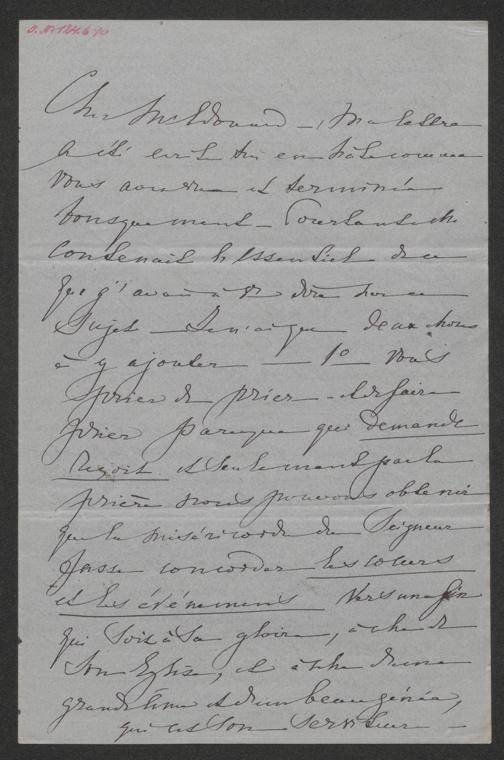 Cher Mr Edouard – Ma lettre
a été écrite très en hâte comme
vous avez vu et terminée
brusquement – Pourtant elle
contenait l'essentiel de ce
que j'avais à dire sur ce
sujet – Je n'ai que deux choses
à y ajouter – 1° Vous
prier de prier – et de faire
prier parce que qui demande
reçoit et seulement par la
prière nous pouvons obtenir
que la miséricorde du Seigneur
fasse concorder les cœurs
et les événements vers une fin
qui soit à sa gloire, à celle de
son Eglise, et à celle d'une
grande âme et d'un beau génie,
qui est son serviteur –